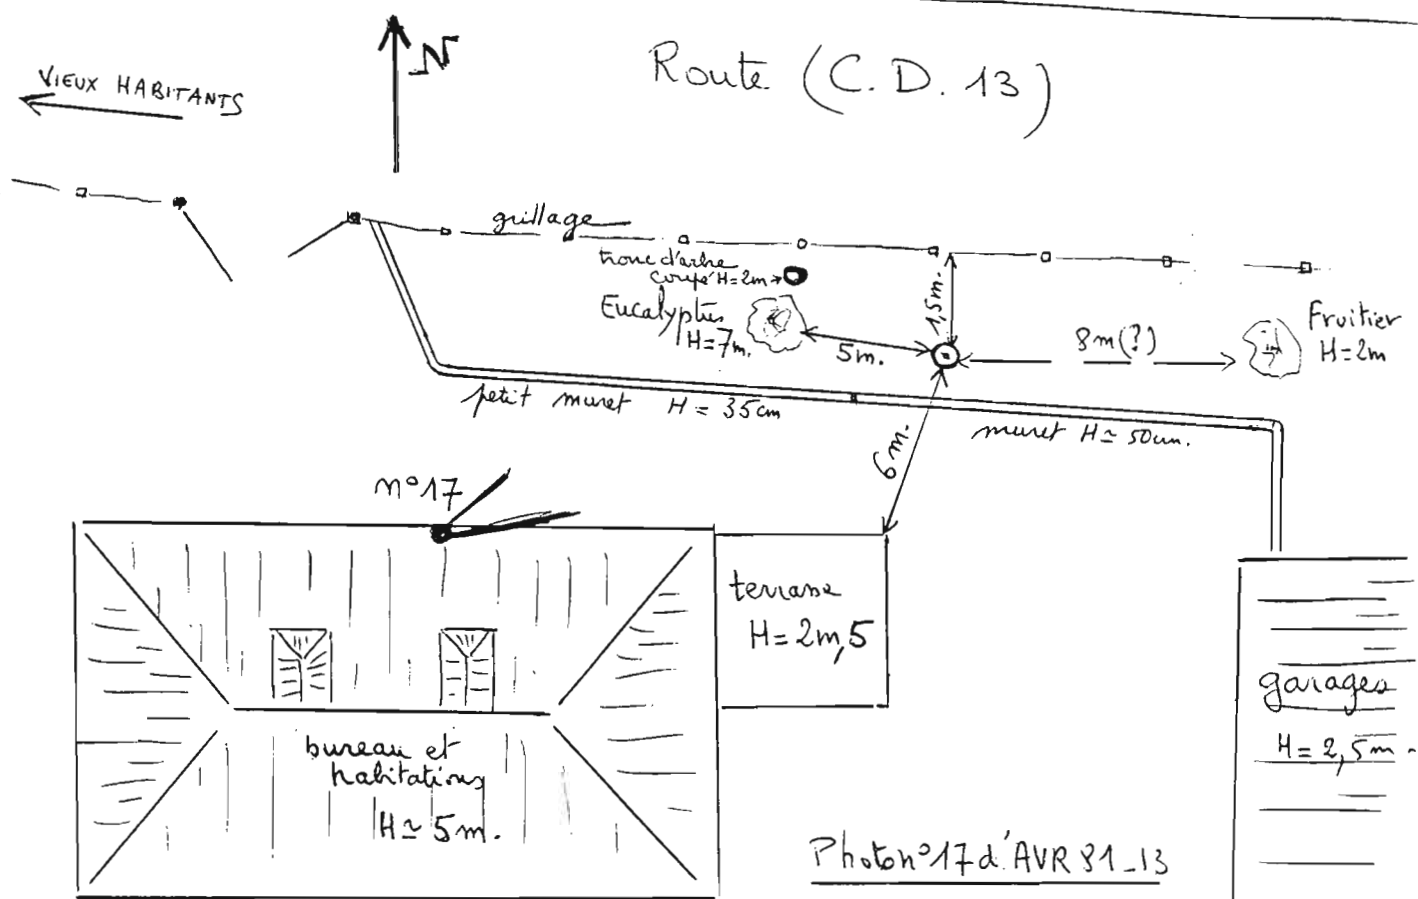 N
Route (C.D. 13)
VIEUX HABITANTS
grillage
tronc d'arbre
coupé H=2m
Eucalyptus
H=7m.
1,5m.
5m.
8m(?)
Fruitier
H=2m
petit muret H = 35cm
muret H≃50cm.
6m.
n°17
terrasse
H=2m,5
garages
H=2,5m.
bureau et
habitations
H≃5m.
Photo n°17 d'AVR 81_13